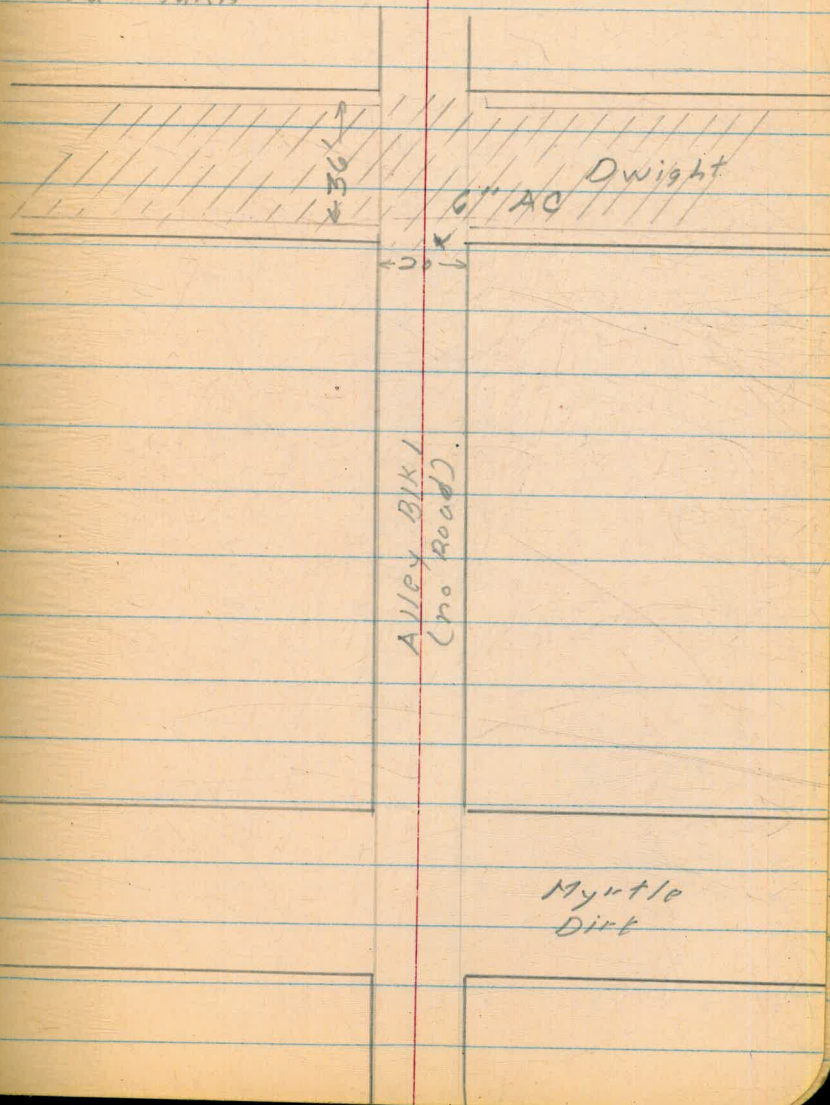 36'
Dwight
6" AC
20
Alley Blk 1
(no Road)
Myrtle
Dirt